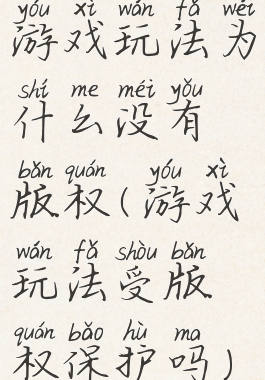 yóu xì wán fǎ wéi
游戏玩法为
shí me méi yǒu
什么没有
bǎn quán yóu xì
版权(游戏
wán fǎ shòu bǎn
玩法受版
quán bǎo hù ma
权保护吗)